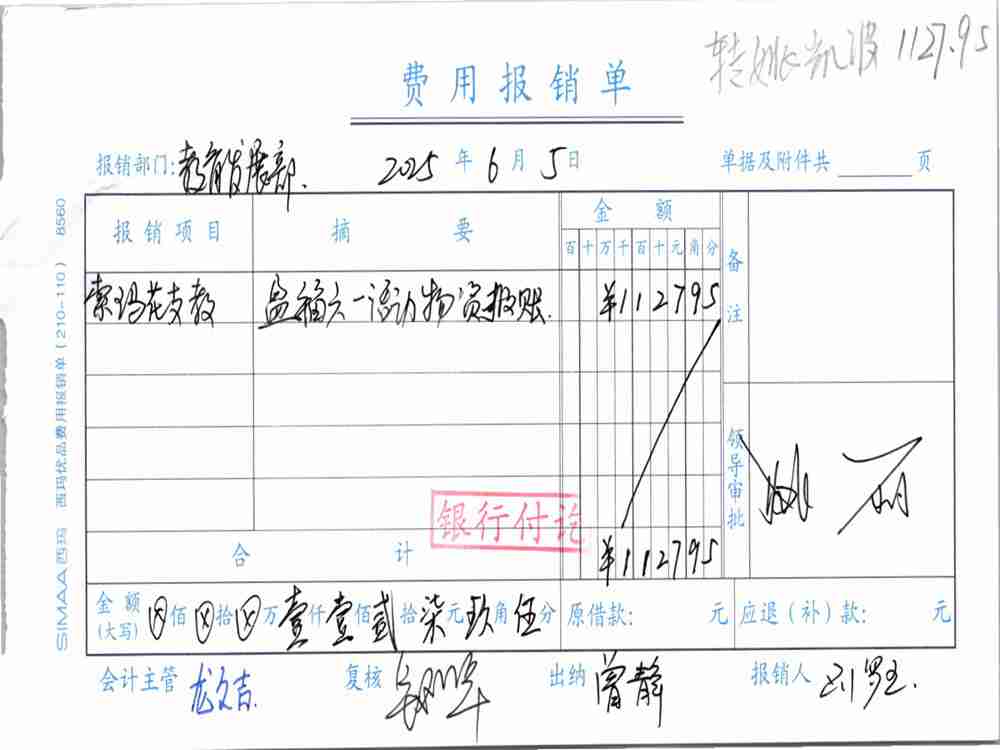 转姚凯波 1127.95
费用报销单
报销部门: 教育发展部. 2025 年 6 月 5 日 单据及附件共 页
报销项目 摘要 金额 备注
百 十 万 千 百 十 元 角 分
索玛花支教 盐源六一活动物资报账. ¥112795
领导审批
银行付讫
合计 ¥112795
金额(大写) ⊗佰⊗拾⊗万壹仟壹佰贰拾柒元玖角伍分 原借款: 元 应退(补)款: 元
会计主管 龙文吉. 复核 出纳 曾静 报销人
SIMAA西玛 西玛优品费用报销单(210-110) 8560